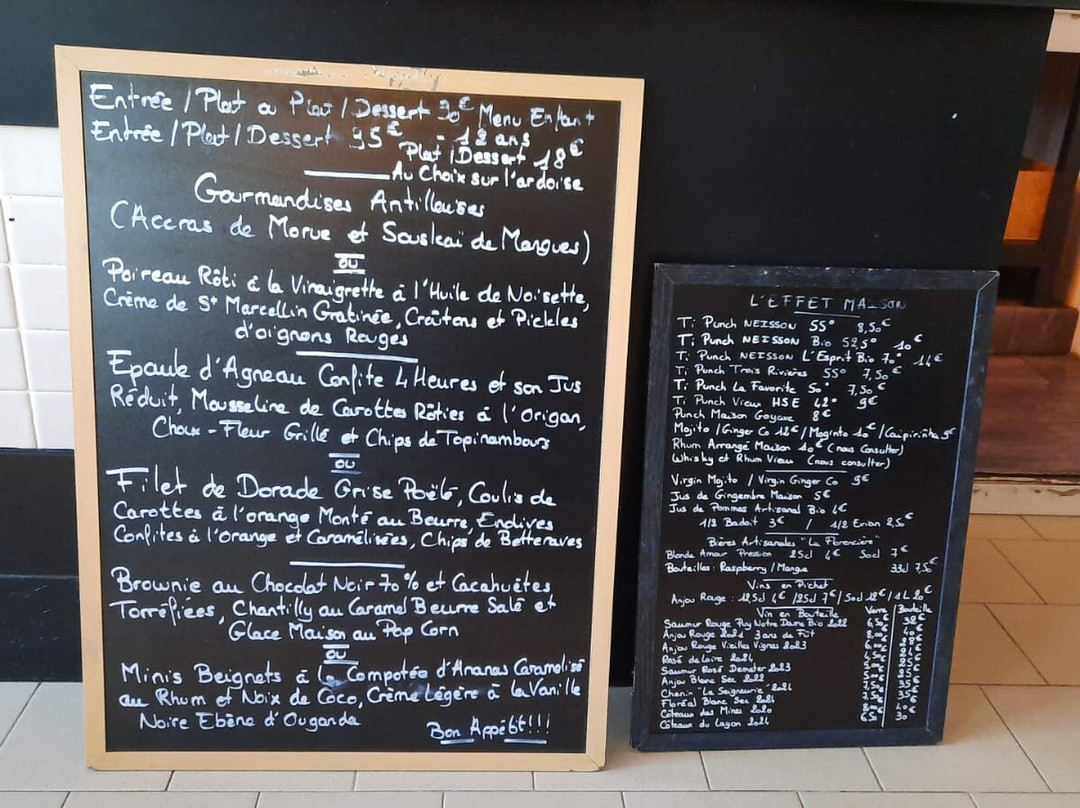 Entrée / Plat ou Plat / Dessert 30€ Menu Enfant
Entrée / Plat / Dessert 35€ - 12 ans
Plat / Dessert 18€
Au Choix sur l'ardoise
Gourmandises Antillaises
(Accras de Morue et Souskaï de Mangues)
ou
Poireau Rôti à la Vinaigrette à l'Huile de Noisette,
Crème de St Marcellin Gratinée, Croûtons et Pickles
d'oignons Rouges
Epaule d'Agneau Confite 4 Heures et son Jus
Réduit, Mousseline de Carottes Rôties à l'Origan,
Choux-Fleur Grillé et Chips de Topinambours
ou
Filet de Dorade Grise Poëlé, Coulis de
Carottes à l'orange Monté au Beurre, Endives
Confites à l'Orange et Caramélisées, Chips de Betteraves
Brownie au Chocolat Noir 70% et Cacahuètes
Torréfiées, Chantilly au Caramel Beurre Salé et
Glace Maison au Pop Corn
ou
Minis Beignets à la Compotée d'Ananas Caramelisé
au Rhum et Noix de Coco, Crème Légère à la Vanille
Noire Ebène d'Ouganda
Bon Appétit!!!
L'EFFET MAISON
Ti Punch NEISSON 55° 8,50€
Ti Punch NEISSON Bio 52,5° 10€
Ti Punch NEISSON L'Esprit Bio 70° 14€
Ti Punch Trois Rivières 55° 7,50€
Ti Punch La Favorite 50° 7,50€
Ti Punch Vieux HSE 42° 9€
Punch Maison Goyave 8€
Mojito / Ginger Co 12€ / Moginto 10€ / Caïpiriñha 9€
Rhum Arrangé Maison 10€ (nous Consulter)
Whisky et Rhum Vieux (nous consulter)
Virgin Mojito / Virgin Ginger Co 9€
Jus de Gingembre Maison 5€
Jus de Pommes Artisanal Bio 4€
1/2 Badoit 3€ / 1/2 Evian 2,50€
Bières Artisanales "La Florencière"
Blonde Amour Pression 25cl 4€ 50cl 7€
Bouteilles: Raspberry / Mangue 33cl 7,50€
Vins en Pichet
Anjou Rouge: 12,5cl 4€ / 25cl 7€ / 50cl 12€ / 1L 20€
Vin en Bouteille Verre Bouteille
Saumur Rouge Puy Notre Dame Bio 2022 6,50€ 32€
Anjou Rouge 2021 3 ans de Fût
Anjou Rouge Vieilles Vignes 2023
Rosé de Loire 2024
Saumur Rosé Demeter 2023
Anjou Blanc Sec 2022
Chenin "La Seigneurie" 2024
Floréal Blanc Sec 2024
Côteaux des Mines 2020
Côteaux du Layon 2024 6,50 30€